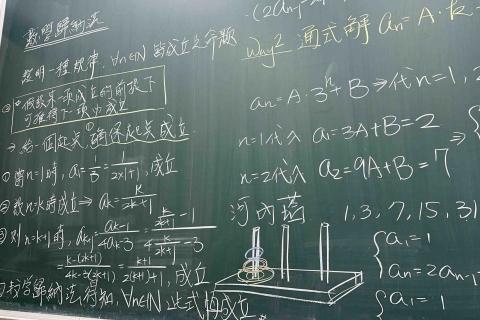 數學歸納法
證明一種規律,∀n∈ℕ 皆成立之命題
② "假設某一項成立的前提下
可推得下一項也成立
⇒ 給一個起點,確保起點成立.
① 當n=1時, a₁=1/3=1/(2×1+1), 成立
② 設n=k時成立⇒ aₖ=k/(2k+1)
③ 則n=k+1時, aₖ₊₁=(aₖ-1)/(4aₖ-3)=(k/(2k+1) -1)/(4 k/(2k+1) -3)
=(k-(2k+1))/(4k-3(2k+1))=(k+1)/(2(k+1)+1), 成立
數學歸納法得知, ∀n∈ℕ 此式均成立
Way2 通式解 aₙ=A·k
aₙ=A·3ⁿ+B ⇒代n=1,2
n=1代入 a₁=3A+B=2 ⇒ {
n=2代入 a₂=9A+B=7
河內塔 1,3,7,15,31
{ a₁=1
aₙ=2aₙ₋₁
{ a₁=1